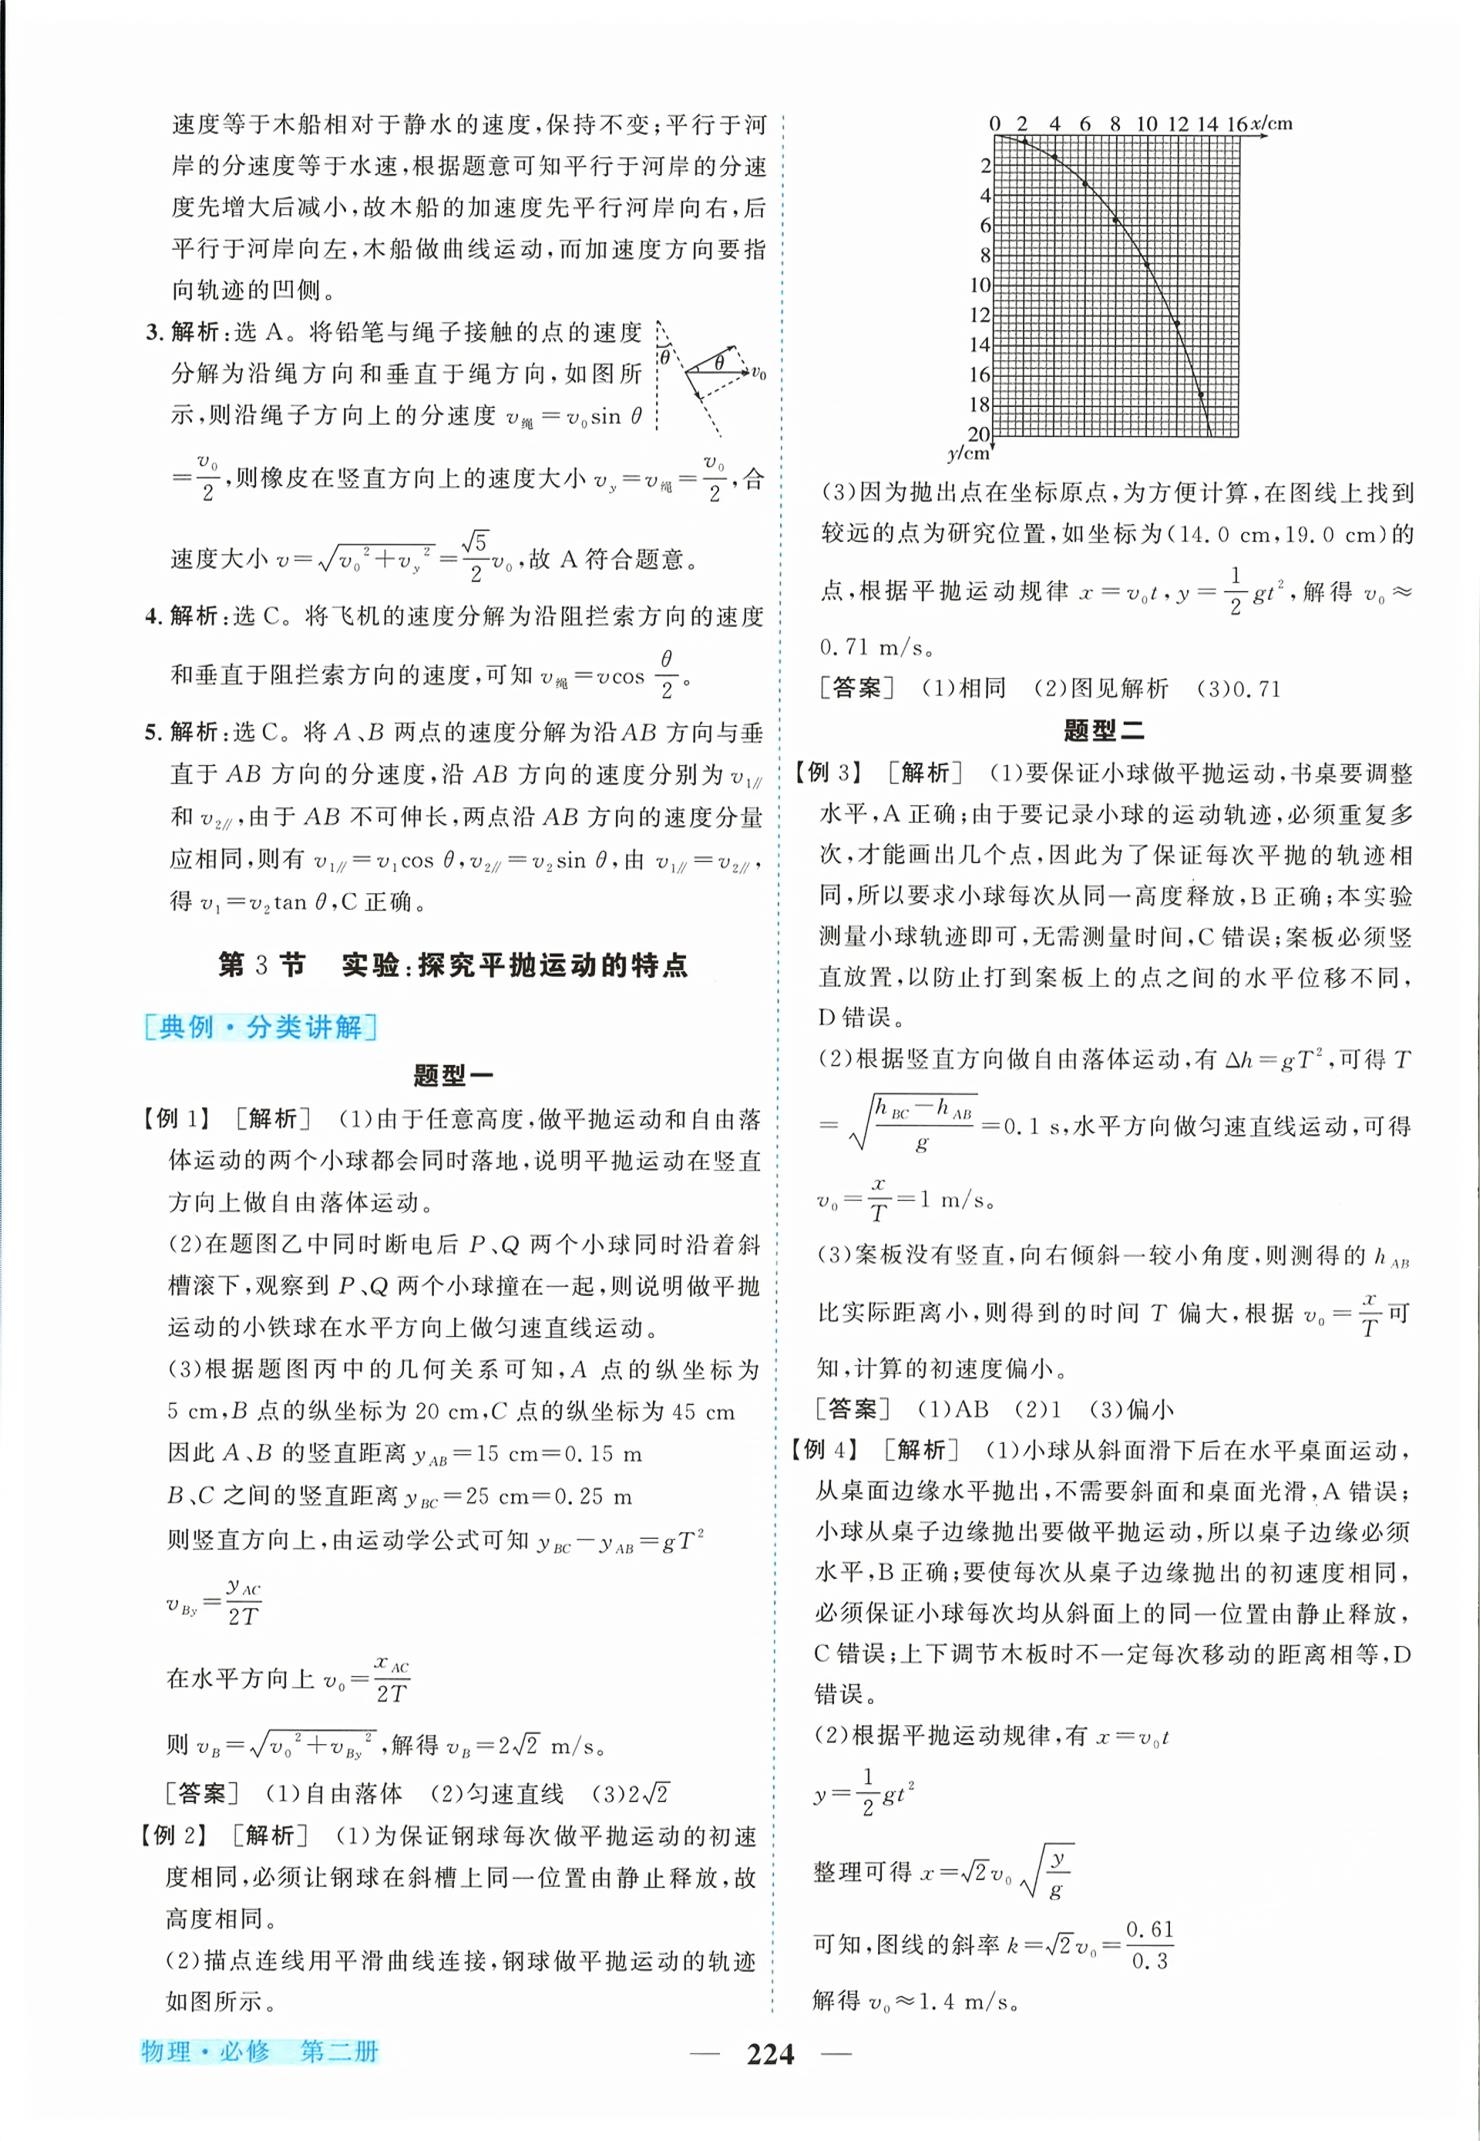 速度等于木船相对于静水的速度,保持不变;平行于河
岸的分速度等于水速,根据题意可知平行于河岸的分速
度先增大后减小,故木船的加速度先平行河岸向右,后
平行于河岸向左,木船做曲线运动,而加速度方向要指
向轨迹的凹侧。
3. 解析:选 A。将铅笔与绳子接触的点的速度
分解为沿绳方向和垂直于绳方向,如图所
示,则沿绳子方向上的分速度 v绳=v₀sin θ
θ θ v₀
=v₀/2,则橡皮在竖直方向上的速度大小 v_y=v绳=v₀/2,合
速度大小 v=√(v₀²+v_y²)=(√5/2)v₀,故 A 符合题意。
4. 解析:选 C。将飞机的速度分解为沿阻拦索方向的速度
和垂直于阻拦索方向的速度,可知 v绳=vcos θ/2。
5. 解析:选 C。将 A、B 两点的速度分解为沿 AB 方向与垂
直于 AB 方向的分速度,沿 AB 方向的速度分别为 v₁∥
和 v₂∥,由于 AB 不可伸长,两点沿 AB 方向的速度分量
应相同,则有 v₁∥=v₁cos θ,v₂∥=v₂sin θ,由 v₁∥=v₂∥,
得 v₁=v₂tan θ,C 正确。
第 3 节 实验:探究平抛运动的特点
[典例·分类讲解]
题型一
【例 1】 [解析] (1)由于任意高度,做平抛运动和自由落
体运动的两个小球都会同时落地,说明平抛运动在竖直
方向上做自由落体运动。
(2)在题图乙中同时断电后 P、Q 两个小球同时沿着斜
槽滚下,观察到 P、Q 两个小球撞在一起,则说明做平抛
运动的小铁球在水平方向上做匀速直线运动。
(3)根据题图丙中的几何关系可知,A 点的纵坐标为
5 cm,B 点的纵坐标为 20 cm,C 点的纵坐标为 45 cm
因此 A、B 的竖直距离 y_AB=15 cm=0.15 m
B、C 之间的竖直距离 y_BC=25 cm=0.25 m
则竖直方向上,由运动学公式可知 y_BC-y_AB=gT²
v_By=y_AC/2T
在水平方向上 v₀=x_AC/2T
则 v_B=√(v₀²+v_By²),解得 v_B=2√2 m/s。
[答案] (1)自由落体 (2)匀速直线 (3)2√2
【例 2】 [解析] (1)为保证钢球每次做平抛运动的初速
度相同,必须让钢球在斜槽上同一位置由静止释放,故
高度相同。
(2)描点连线用平滑曲线连接,钢球做平抛运动的轨迹
如图所示。
0 2 4 6 8 10 12 14 16 x/cm
2
4
6
8
10
12
14
16
18
20
y/cm
(3)因为抛出点在坐标原点,为方便计算,在图线上找到
较远的点为研究位置,如坐标为(14.0 cm,19.0 cm)的
点,根据平抛运动规律 x=v₀t,y=1/2 gt²,解得 v₀≈
0.71 m/s。
[答案] (1)相同 (2)图见解析 (3)0.71
题型二
【例 3】 [解析] (1)要保证小球做平抛运动,书桌要调整
水平,A 正确;由于要记录小球的运动轨迹,必须重复多
次,才能画出几个点,因此为了保证每次平抛的轨迹相
同,所以要求小球每次从同一高度释放,B 正确;本实验
测量小球轨迹即可,无需测量时间,C 错误;案板必须竖
直放置,以防止打到案板上的点之间的水平位移不同,
D 错误。
(2)根据竖直方向做自由落体运动,有 Δh=gT²,可得 T
=√((h_BC-h_AB)/g)=0.1 s,水平方向做匀速直线运动,可得
v₀=x/T=1 m/s。
(3)案板没有竖直,向右倾斜一较小角度,则测得的 h_AB
比实际距离小,则得到的时间 T 偏大,根据 v₀=x/T可
知,计算的初速度偏小。
[答案] (1)AB (2)1 (3)偏小
【例 4】 [解析] (1)小球从斜面滑下后在水平桌面运动,
从桌面边缘水平抛出,不需要斜面和桌面光滑,A 错误;
小球从桌子边缘抛出要做平抛运动,所以桌子边缘必须
水平,B 正确;要使每次从桌子边缘抛出的初速度相同,
必须保证小球每次均从斜面上的同一位置由静止释放,
C 错误;上下调节木板时不一定每次移动的距离相等,D
错误。
(2)根据平抛运动规律,有 x=v₀t
y=1/2 gt²
整理可得 x=√2v₀√(y/g)
可知,图线的斜率 k=√2v₀=0.61/0.3
解得 v₀≈1.4 m/s。
物理·必修 第二册
— 224 —